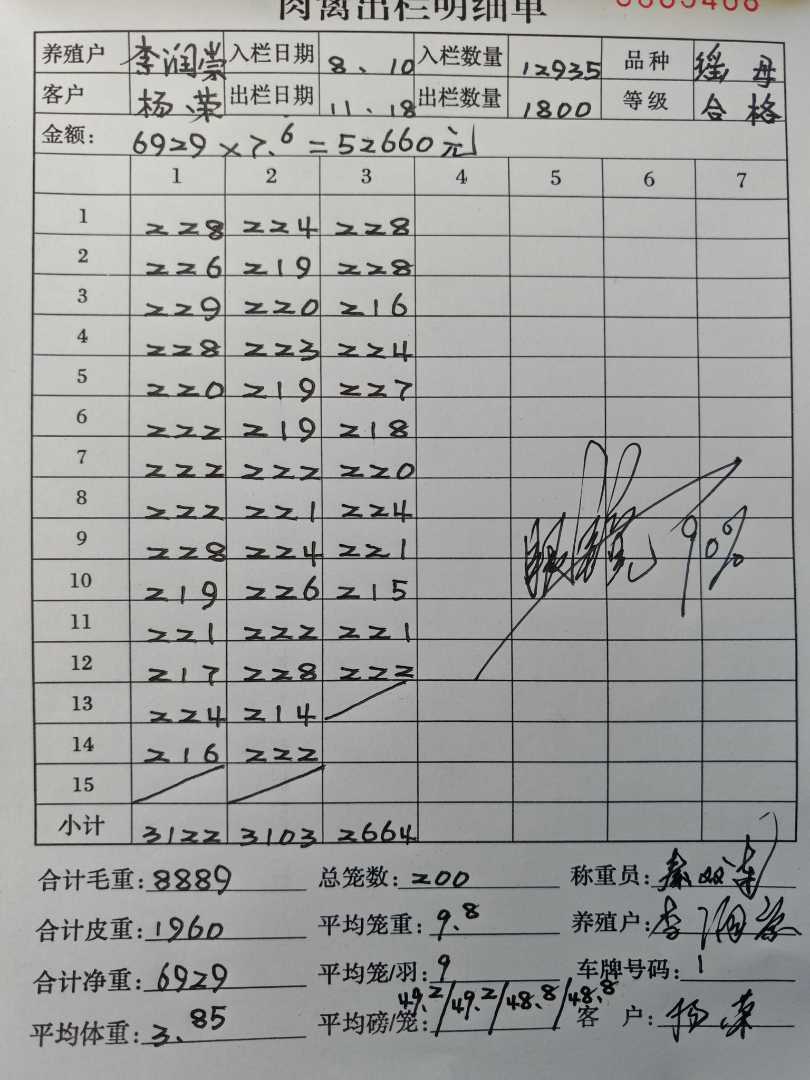 肉禽出栏明细单
养殖户 李润崇 入栏日期 8、10 入栏数量 12935 品种 瑶母
客户 杨荣 出栏日期 11、18 出栏数量 1800 等级 合格
金额: 6929×7.6=52660元
1 2 3 4 5 6 7
1 228 224 228
2 226 219 228
3 229 220 216
4 228 223 224
5 220 219 227
6 222 219 218
7 222 222 220
8 222 221 224
9 228 224 221
90%
10 219 226 215
11 221 222 221
12 217 228 222
13 224 214
14 216 222
15
小计 3122 3103 2664
合计毛重: 8889 总笼数: 200 称重员:
合计皮重: 1960 平均笼重: 9.8 养殖户: 李润崇
合计净重: 6929 平均笼/羽: 9 车牌号码: 1
平均体重: 3.85 平均磅/笼: 49.2/49.2/48.8/48.8 客 户: 杨荣